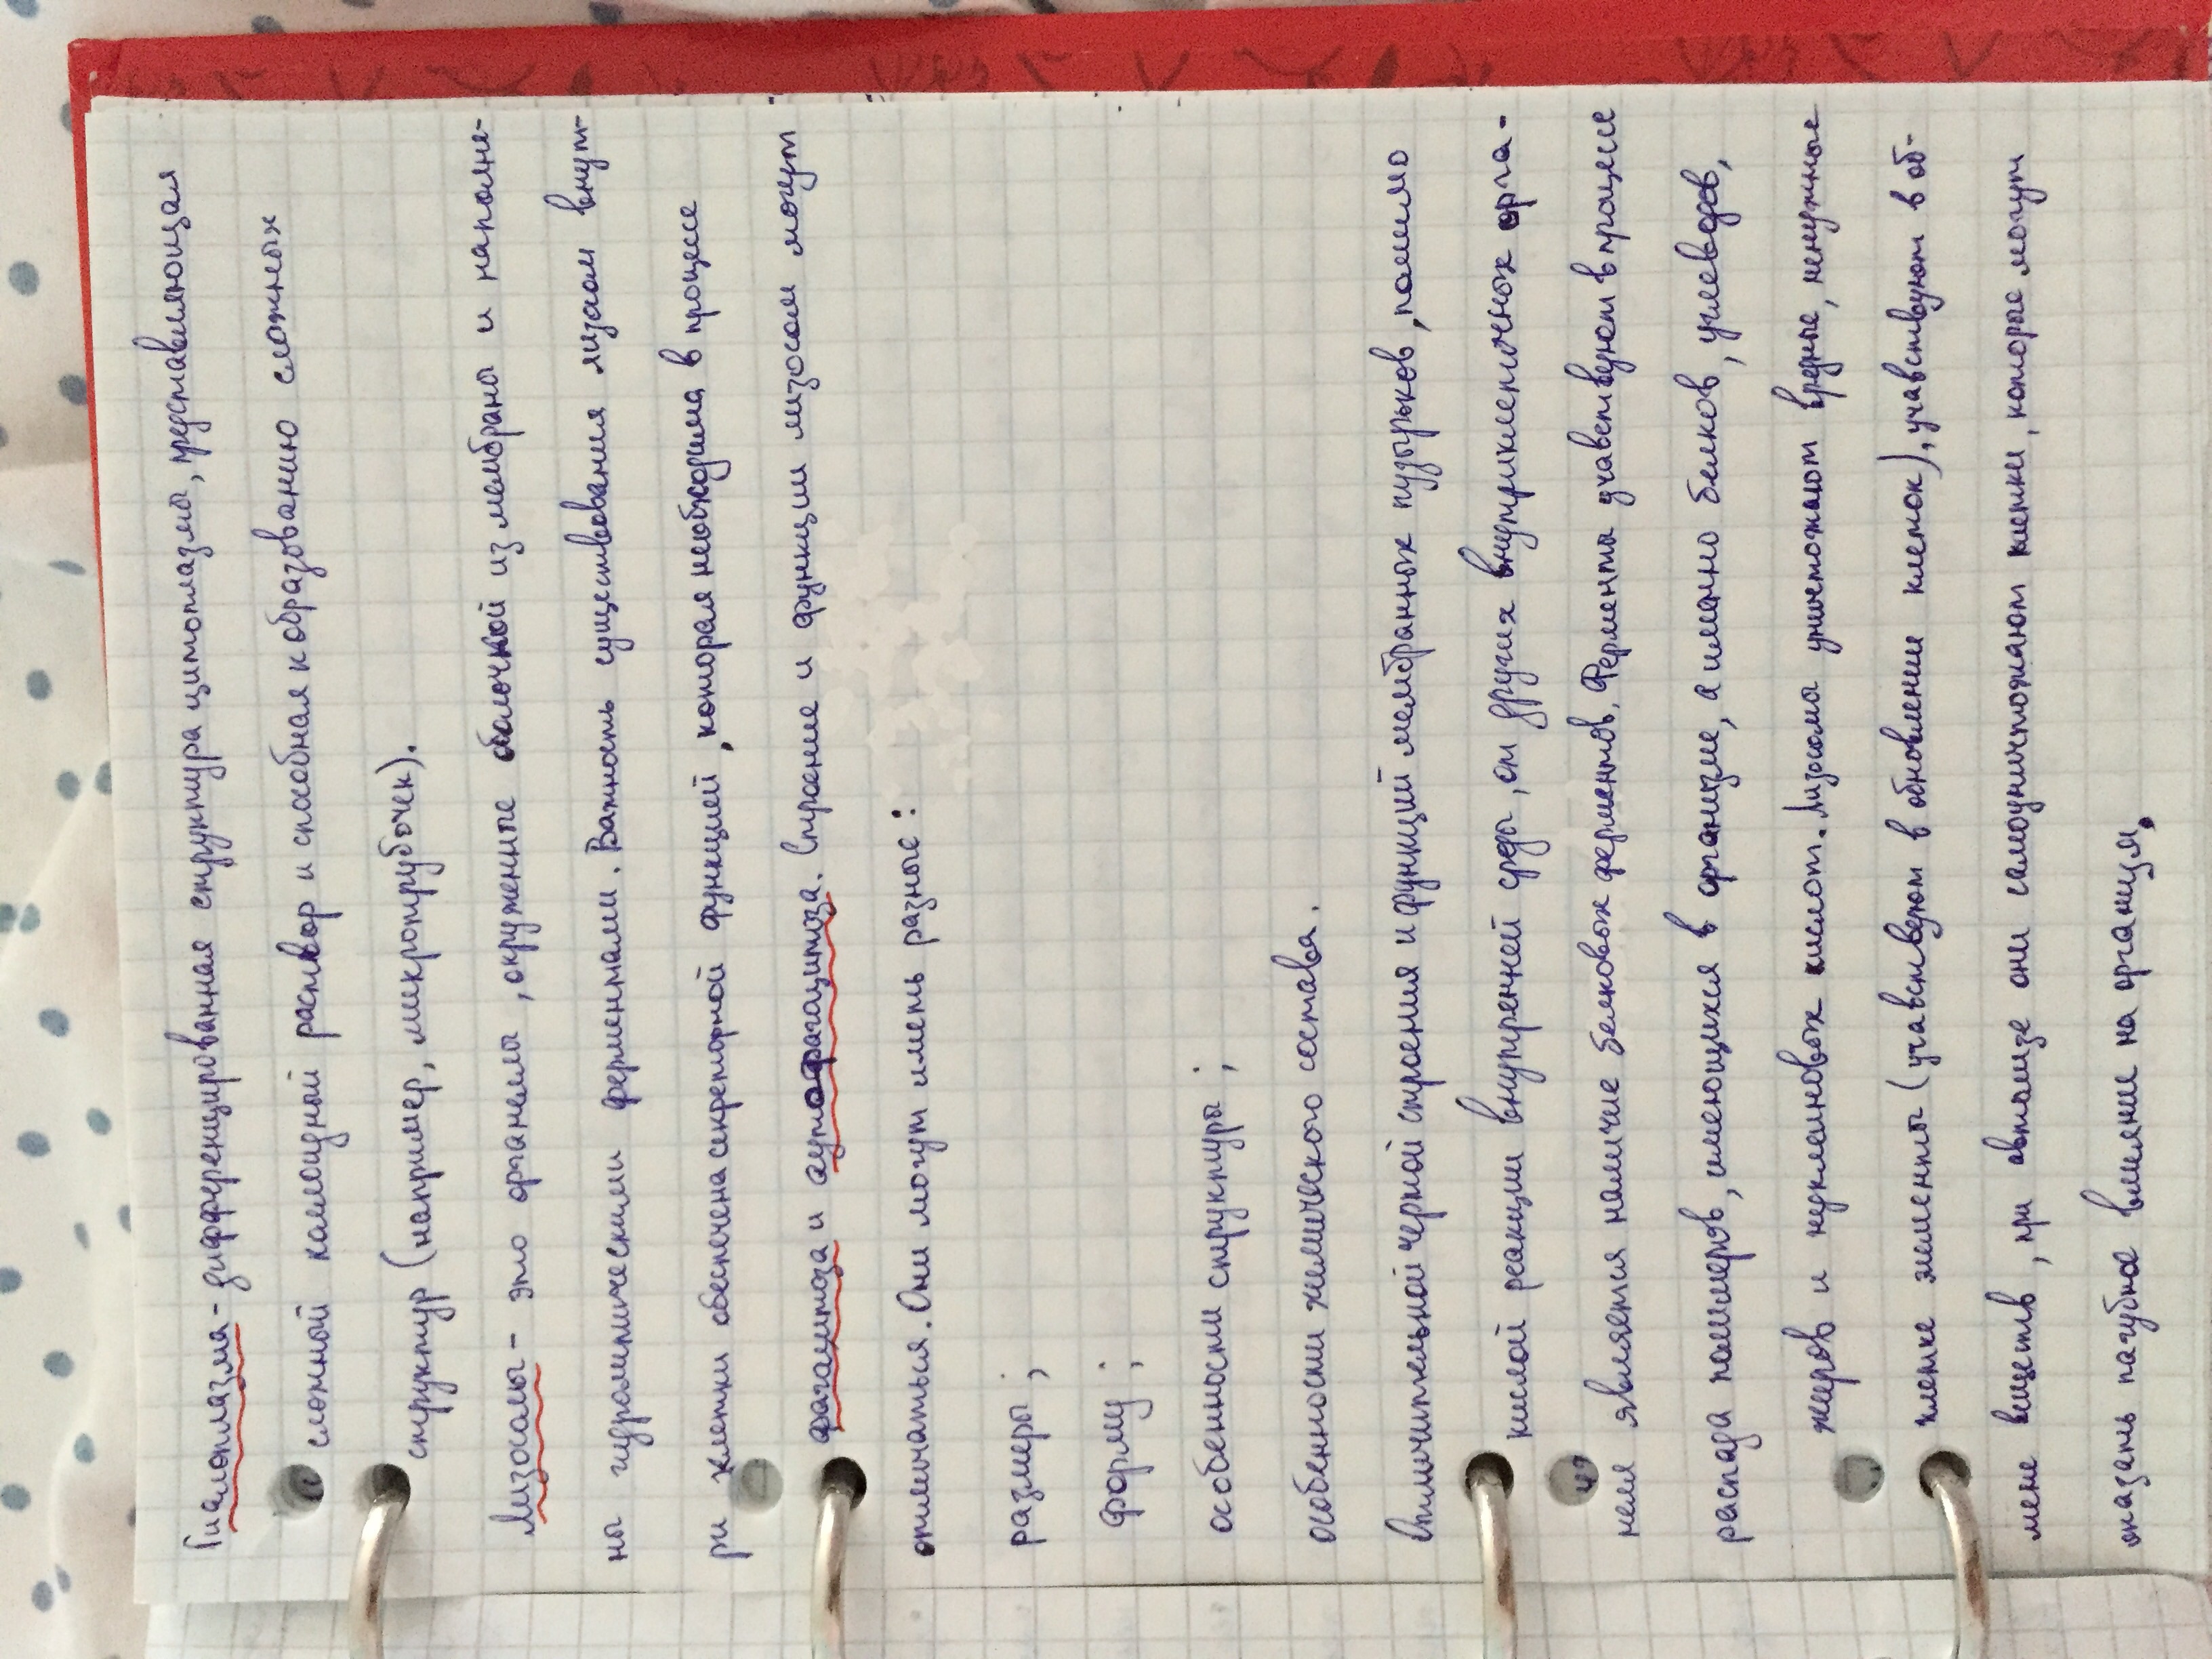 Гиалоплазма - дифференцированная структура цитоплазмы, представляющая
сложный коллоидный раствор и способная к образованию сложных
структур (например, микротрубочек).
Лизосомы - это органеллы, окруженные оболочкой из мембраны и наполне-
ны гидролитическими ферментами. Важность существования лизосом внут-
ри клетки обеспечена секреторной функцией, которая необходима в процессе
фагоцитоза и аутофагоцитоза. Строение и функции лизосом могут
отличаться. Они могут иметь разные:
размеры;
форму;
особенности структуры;
особенности химического состава.
Отличительной чертой строения и функций мембранных пузырьков, помимо
кислой реакции внутренней среды, от других внутриклеточных орга-
нелл является наличие белковых ферментов. Ферменты учавствуют в процессе
распада полимеров, имеющихся в организме, а именно белков, углеводов,
жиров и нуклеиновых кислот. Лизосомы уничтожают вредные, ненужные
клетке элементы (учавствуют в обновлении клеток), учавствуют в об-
мене веществ, при автолизе они самоуничтожают клетки, которые могут
оказать пагубное влияние на организм.